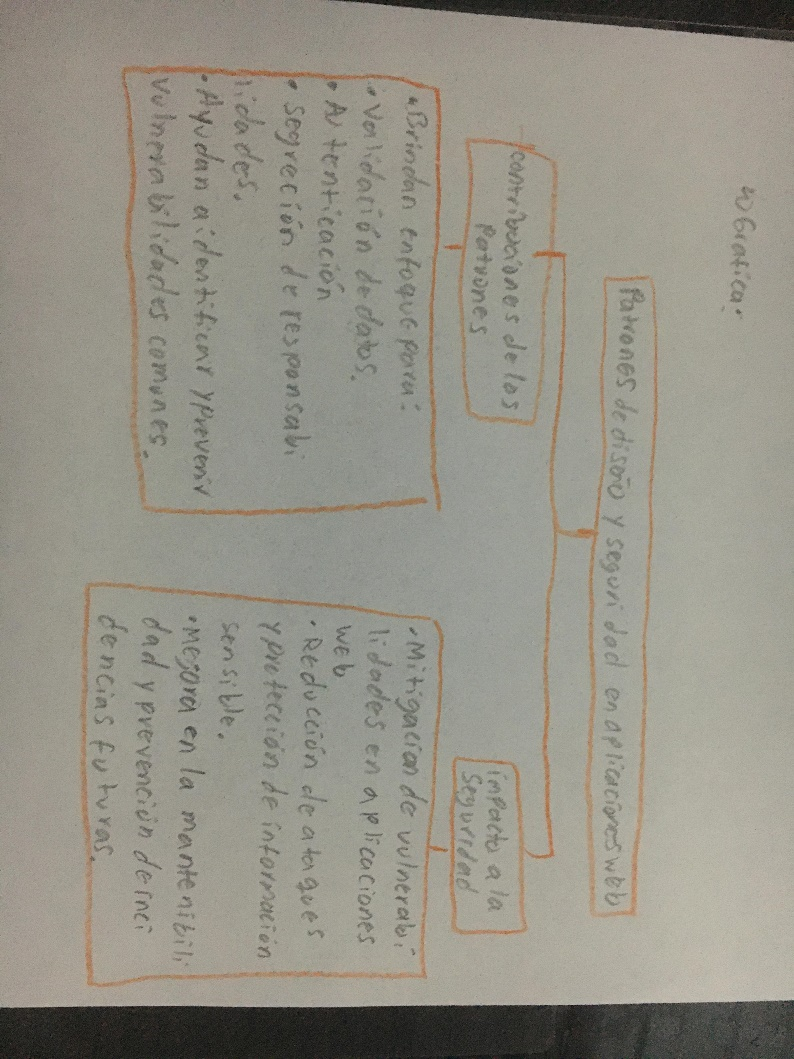 4) Grafica:
Patrones de diseño y seguridad en aplicaciones web
contribuciones de los
Patrones
impacto a la
Seguridad
• Brindan enfoque para:
• Validación de datos.
• Autenticación
• segreción de responsabi
lidades.
• Ayudan a identificar y prevenir
vulnerabilidades comunes.
• Mitigacion de vulnerabi
lidades en aplicaciones
web
• Reducción de ataques
y protección de información
sensible.
• Mejora en la mantenibili
dad y prevención de inci
dencias futuras.